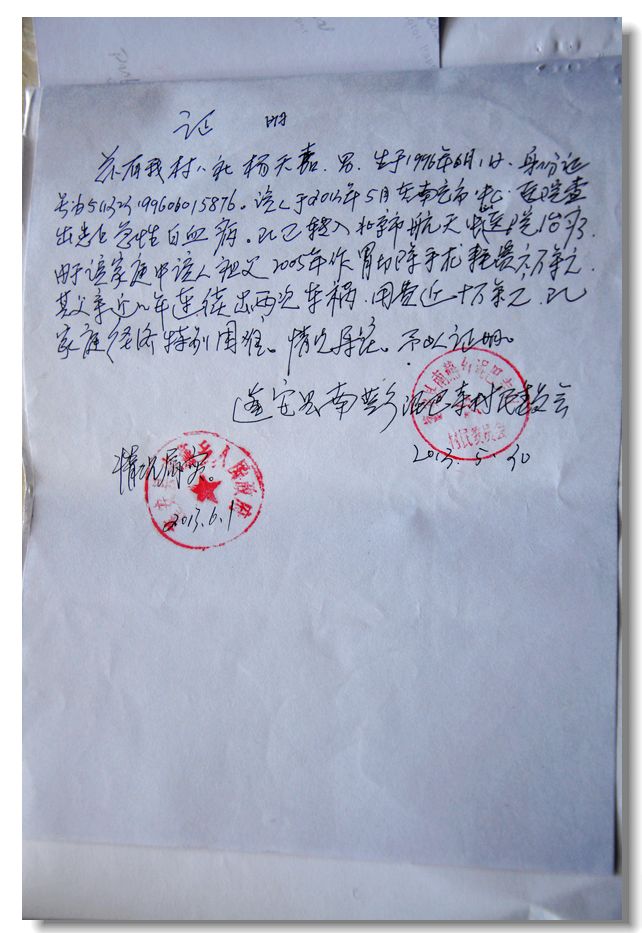 证 明
兹有我村八社杨天嘉，男，生于1996年6月1日，身份证
号为511323199606015876。该人于2013年5月在南充市中心医院查
出患上急性白血病。现已转入北京市航天中心医院治疗。
由于该家庭中该人祖父2005年作胃切除手术耗资六万余元，
其父亲近几年连续出两次车祸，用费近十万余元，现
家庭经济特别困难。情况属实。予以证明。
蓬安县南燕乡泥巴寺村民委员会
村民委员会
2013.5.30
情况属实。
乡人民政府
2013.6.1